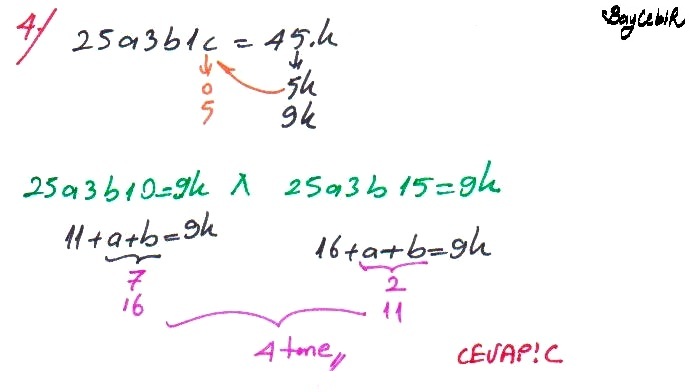 BayCebiR
4./ 25a3b1c = 45.k
0 5k
5 9k
25a3b10=9k ∧ 25a3b15=9k
11+a+b=9k 16+a+b=9k
7 2
16 11
4 tane,,
CEVAP:C